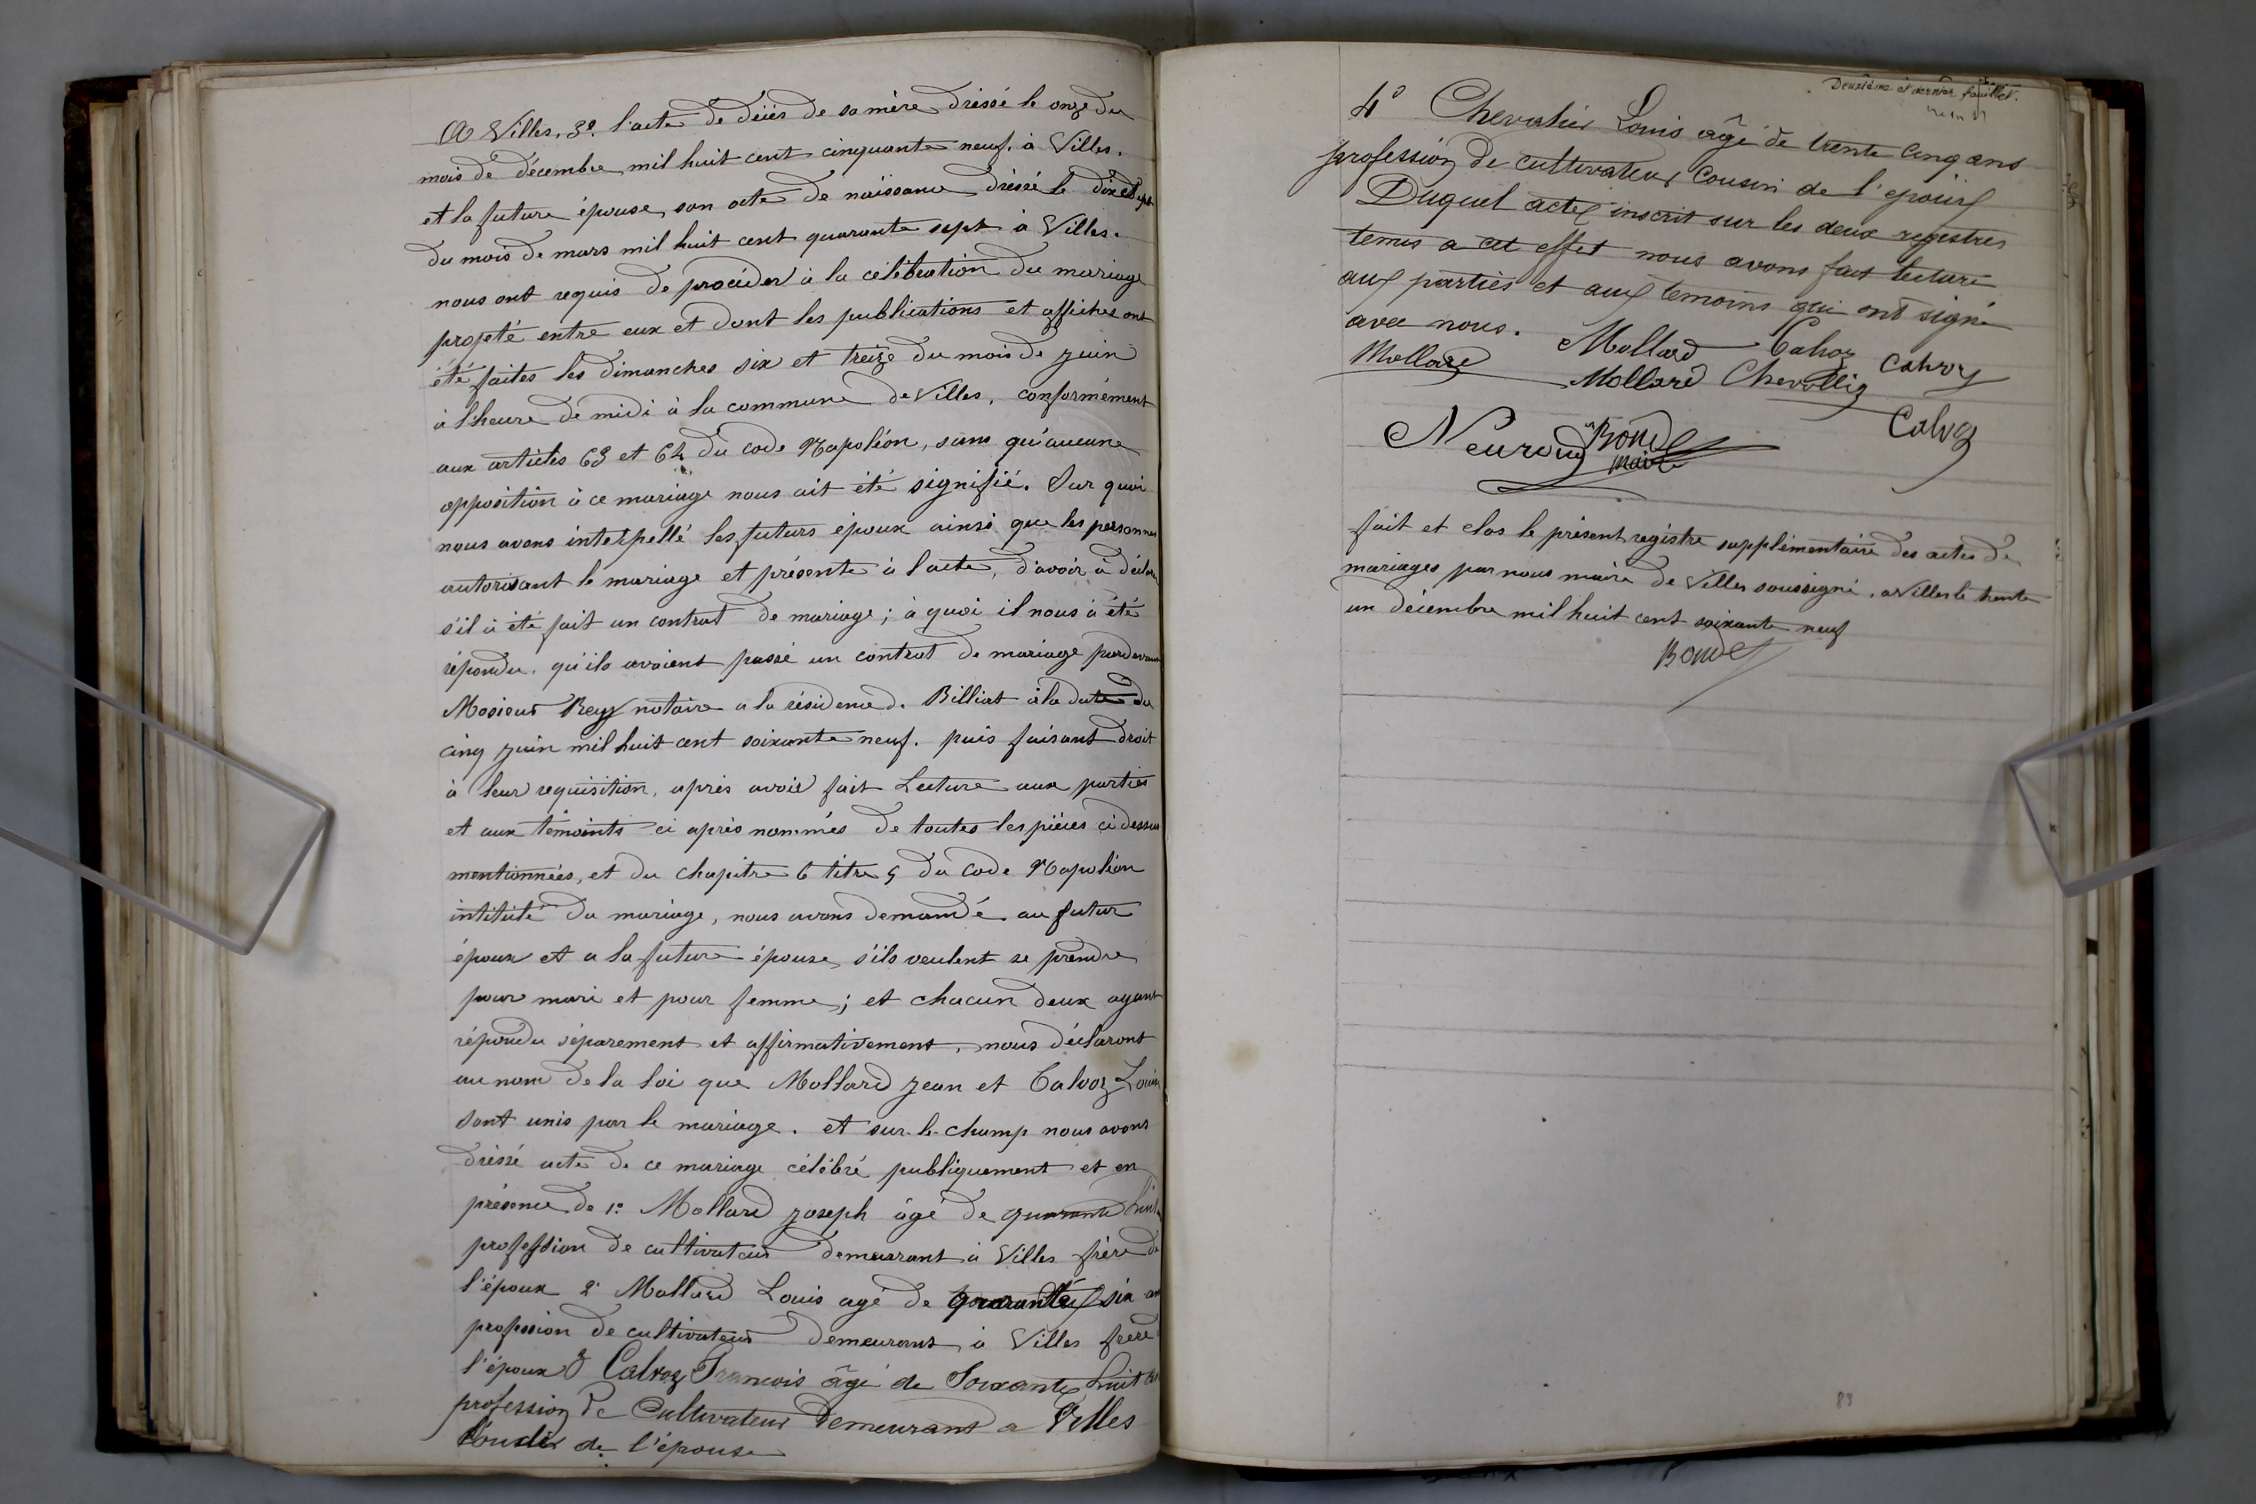 A Villes, 3º. l'acte de décès de sa mère dréssé le onze du
mois de décembre mil huit cent cinquante neuf. à Villes.
et la future épouse, son acte de naissance dréssé le dix sept
du mois de mars mil huit cent quarante sept à Villes.
nous ont requis de procéder à la célébration du mariage
projeté entre eux et dont les publications et affiches ont
été faites les dimanches six et treize du mois de juin
à l'heure de midi à la commune de Villes, conformément
aux articles 63 et 64 du code Napoléon, sans qu'aucune
opposition à ce mariage nous ait été signifié. Sur quoi
nous avons interpellé les futurs époux ainsi que les personnes
autorisant le mariage et présente à l'acte, d'avoir à déclarer
s'il à été fait un contrat de mariage; à quoi il nous à été
répondu. qu'ils avaient passé un contrat de mariage pardevant
Mosieur Rey notaire a la résidence d. Billiat à la date du
cinq juin mil huit cent soixante neuf. puis faisant droit
à leur requisition, après avoir fait Lecture aux parties
et aux témoints ci après nommés de toutes les pièces ci dessus
mentionnées, et du chapitre 6 titre 5 du code Napoléon
intitulé du mariage, nous avons demandé au futur
époux et a la future épouse, s'ils veulent se prendre
pour mari et pour femme; et chacun deux ayant
répondu séparement et affirmativement, nous déclaront
au nom de la loi que Mollard Jean et Calvoz Louise
sont unis par le mariage. et sur-le-champ nous avons
dréssé acte de ce mariage célébré publiquement et en
présence de 1º. Mollard Joseph âgé de quarante huit
profession de cultivateur demeurant à Villes frère de
l'époux 2º Mollard Louis agé de quarante six ans
profession de cultivateur demeurant à Villes frère
l'époux 3 Calvoz Francois âgé de Soixante huit ans
profession de Cultivateur Demeurant a Villes
de l'épouse
Deuxième et dernier feuillet.
4º Chevalier Louis agê de trente cinq ans
profession de cultivateur cousin de l'epoux
Duquel acte inscrit sur les deux registres
tenus a cet effet nous avons fait lecture
aux parties et aux temoins qui ont signé
avec nous. Mollard Calvoz
Mollard Mollard Chevallie Calvoz
Calvoz
Neuroud Bonde
maire
fait et clos le présent registre supplémentaire des actes de
mariages par nous maire de Villes soussigné, a Villes le trente
un décembre mil huit cent soixante neuf
Bonde
83